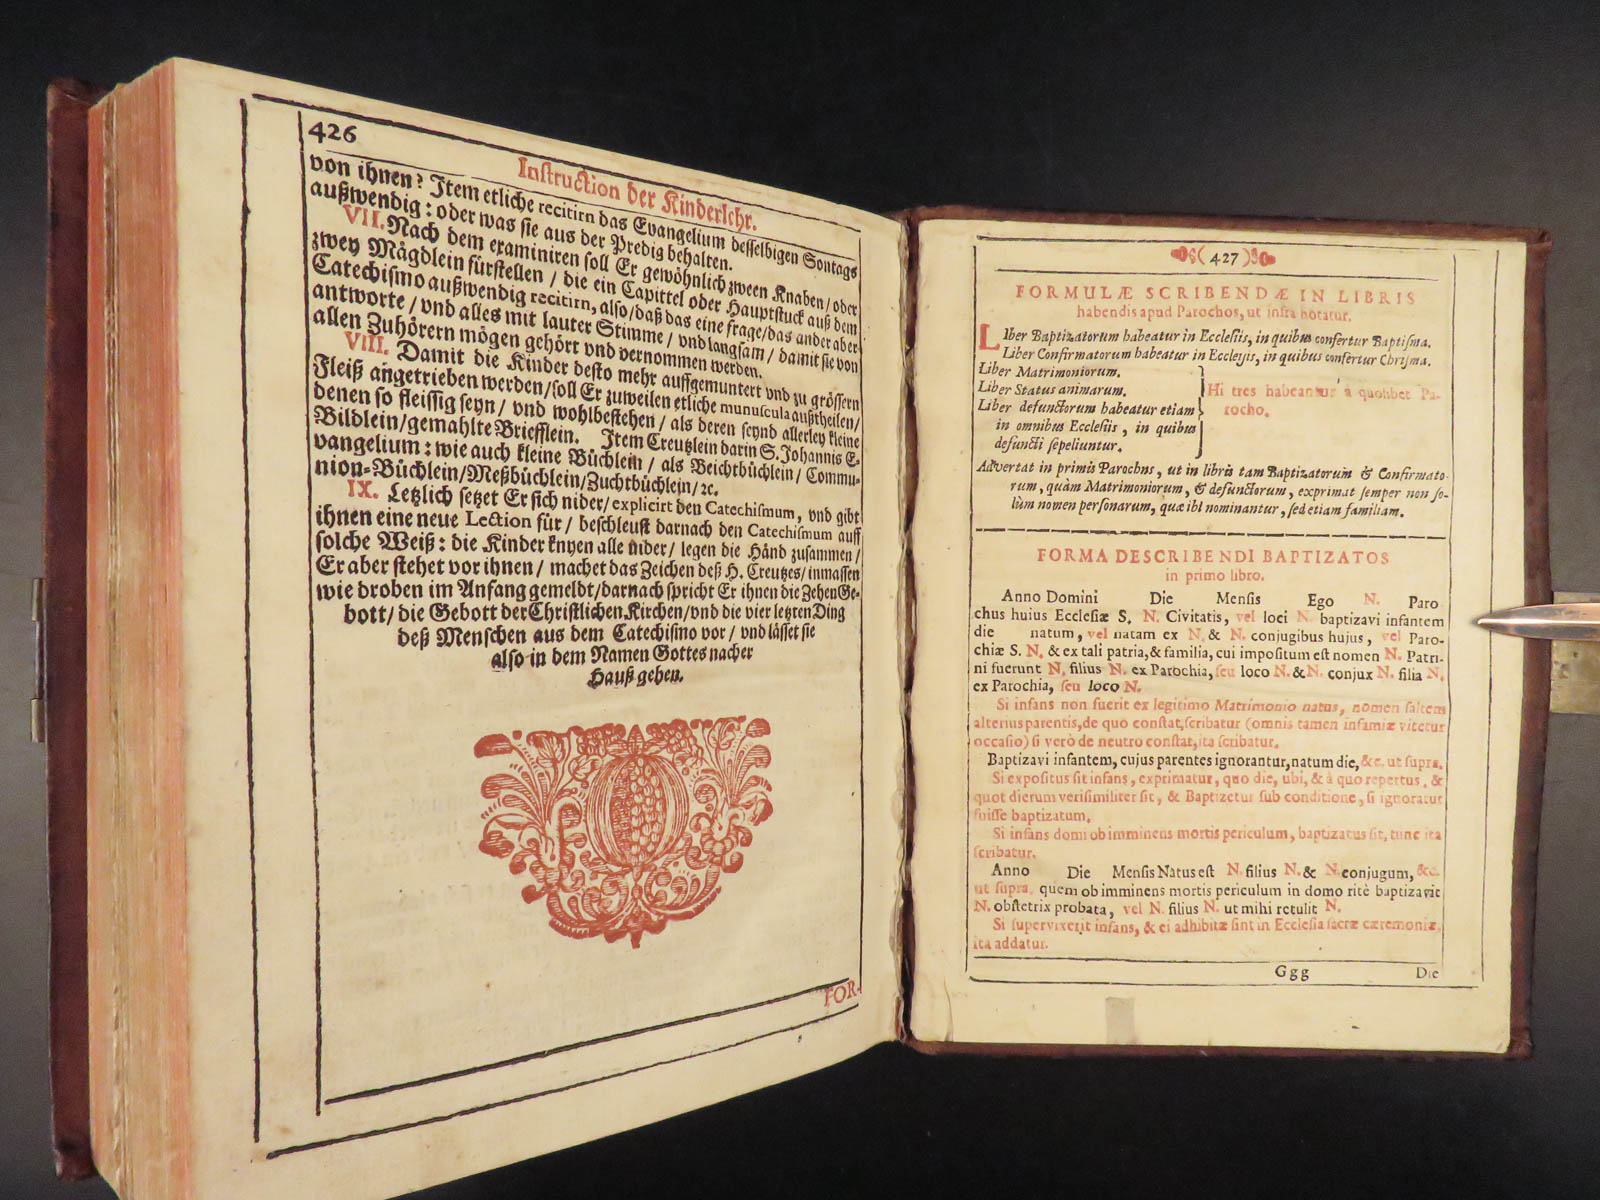 426
Instruction der Kinderlehr.
von ihnen? Item etliche recitirn das Evangelium desselbigen Sontags
außwendig: oder was sie aus der Predig behalten.
VII. Nach dem examiniren soll Er gewöhnlich zween Knaben / oder
zwey Mägdlein fürstellen / die ein Capittel oder Hauptstuck auß dem
Catechismo außwendig recitirn, also / daß das eine frage / das ander aber
antworte / vnd alles mit lauter Stimme / vnd langsam / damit sie von
allen Zuhörern mögen gehört vnd vernommen werden.
VIII. Damit die Kinder desto mehr auffgemuntert vnd zu grössern
Fleiß angetrieben werden / soll Er zuweilen etliche munuscula außtheilen /
denen so fleissig seyn / vnd wohlbestehen / als deren seynd allerley kleine
Bildlein / gemahlte Briefflein. Item Creutzlein darin S. Johannis E-
vangelium: wie auch kleine Büchlein / als Beichtbüchlein / Commu-
nion-Büchlein / Meßbüchlein / Zuchtbüchlein / ꝛc.
IX. Letzlich setzet Er sich nider / explicirt den Catechismum, vnd gibt
ihnen eine neue Lection für / beschleust darnach den Catechismum auff
solche Weiß: die Kinder knyen alle nider / legen die Händ zusammen /
Er aber stehet vor ihnen / machet das Zeichen deß H. Creutzes / inmassen
wie droben im Anfang gemeldt / darnach spricht Er ihnen die Zehen Ge-
bott / die Gebott der Christlichen Kirchen / vnd die vier letzten Ding
deß Menschen aus dem Catechismo vor / vnd lässet sie
also in dem Namen Gottes nacher
Hauß gehen.
FOR-
( 427 )
FORMULÆ SCRIBENDÆ IN LIBRIS
habendis apud Parochos, ut infra notatur.
Liber Baptizatorum habeatur in Ecclesiis, in quibus confertur Baptisma.
Liber Confirmatorum habeatur in Ecclesiis, in quibus confertur Chrisma.
Liber Matrimoniorum.
Liber Status animarum.
Liber defunctorum habeatur etiam
in omnibus Ecclesiis, in quibus
defuncti sepeliuntur.
Hi tres habeantur à quolibet Pa-
rocho.
Advertat in primis Parochus, ut in libris tam Baptizatorum & Confirmato-
rum, quàm Matrimoniorum, & defunctorum, exprimat semper non so-
lùm nomen personarum, quæ ibi nominantur, sed etiam familiam.
FORMA DESCRIBENDI BAPTIZATOS
in primo libro.
Anno Domini Die Mensis Ego N. Paro
chus huius Ecclesiæ S. N. Civitatis, vel loci N. baptizavi infantem
die natum, vel natam ex N. & N. conjugibus hujus, vel Paro-
chiæ S. N. & ex tali patria, & familia, cui impositum est nomen N. Patri-
ni fuerunt N. filius N. ex Parochia, seu loco N. & N. conjux N. filia N.
ex Parochia, seu loco N.
Si infans non fuerit ex legitimo Matrimonio natus, nomen saltem
alterius parentis, de quo constat, scribatur (omnis tamen infamiæ vitetur
occasio) si verò de neutro constat, ita scribatur.
Baptizavi infantem, cujus parentes ignorantur, natum die, &c. ut supra.
Si expositus sit infans, exprimatur, quo die, ubi, & à quo repertus, &
quot dierum verisimiliter sit, & Baptizetur sub conditione, si ignoratur
fuisse baptizatum.
Si infans domi ob imminens mortis periculum, baptizatus sit, tunc ita
scribatur.
Anno Die Mensis Natus est N. filius N. & N. conjugum, &c.
ut supra, quem ob imminens mortis periculum in domo ritè baptizavit
N. obstetrix probata, vel N. filius N. ut mihi retulit N.
Si supervixerit infans, & ei adhibitæ sint in Ecclesia sacræ cæremoniæ,
ita addatur.
Ggg Die